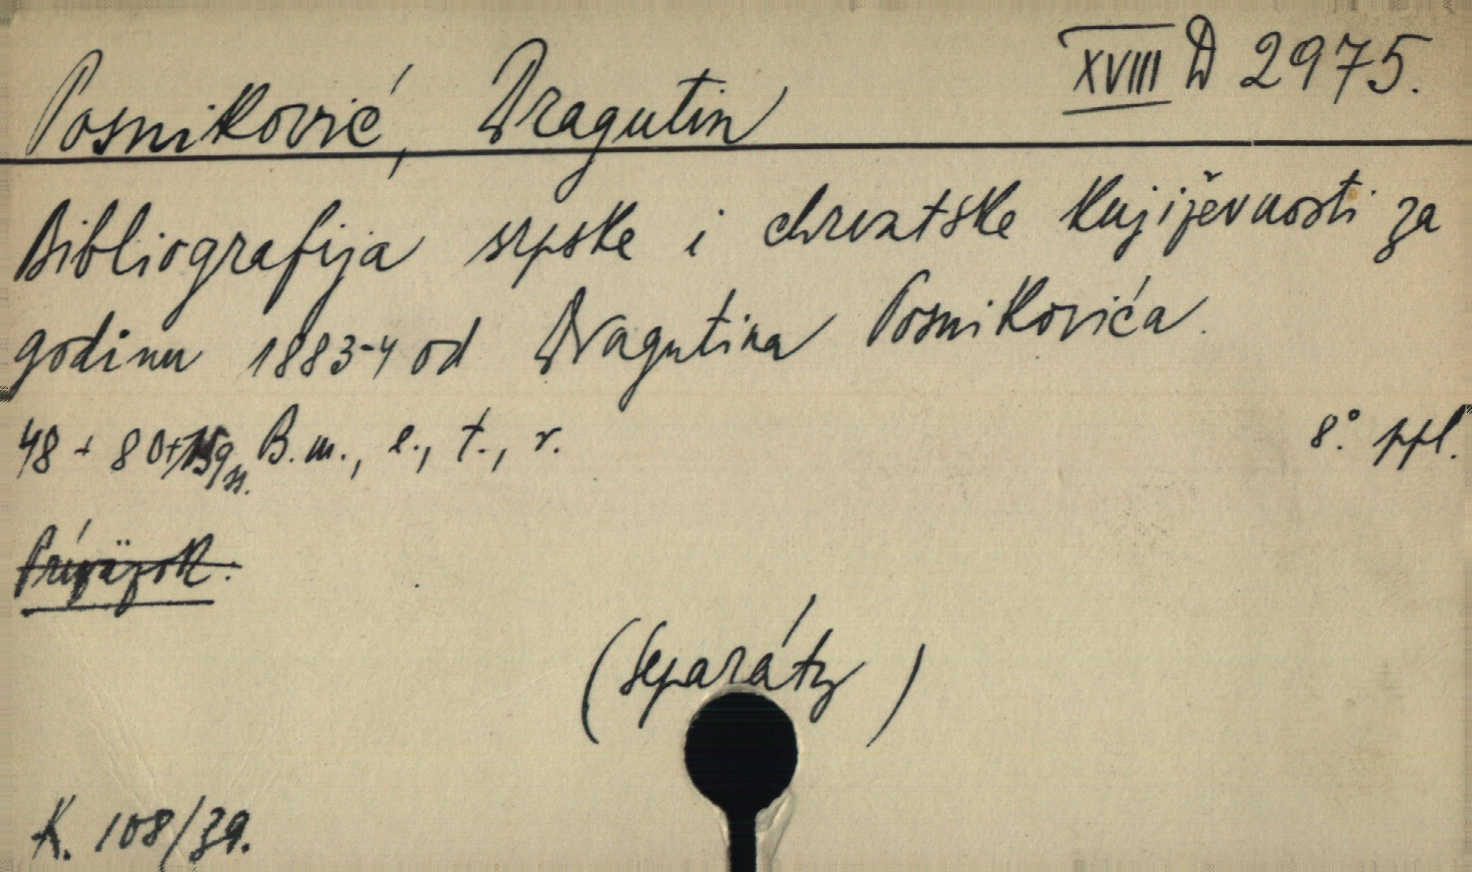 XVIII D 2975.
Posniković, Dragutin
Bibliografija srpske i chrvatske književnosti za
godinu 1883-4 od Dragutina Posnikovića.
48 + 80+ B. m., e., t., r. 8° ppl.
Prívāzok.
(Separáty)
K. 108/39.